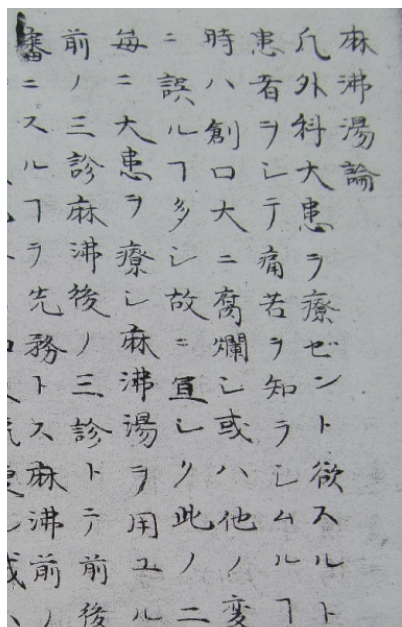 麻沸湯論
凡外科大患ヲ療ゼント欲スルト
患者ヲシテ痛苦ヲ知ラシムルヿ
時ハ創口大ニ腐爛シ或ハ他ノ変
ニ誤ルヿ多シ故ニ宜シク此ノ二
毎ニ大患ヲ療シ麻沸湯ヲ用ユル
前ノ三診麻沸後ノ三診トテ前後
審ニスルヿヲ先務トス麻沸前ノ